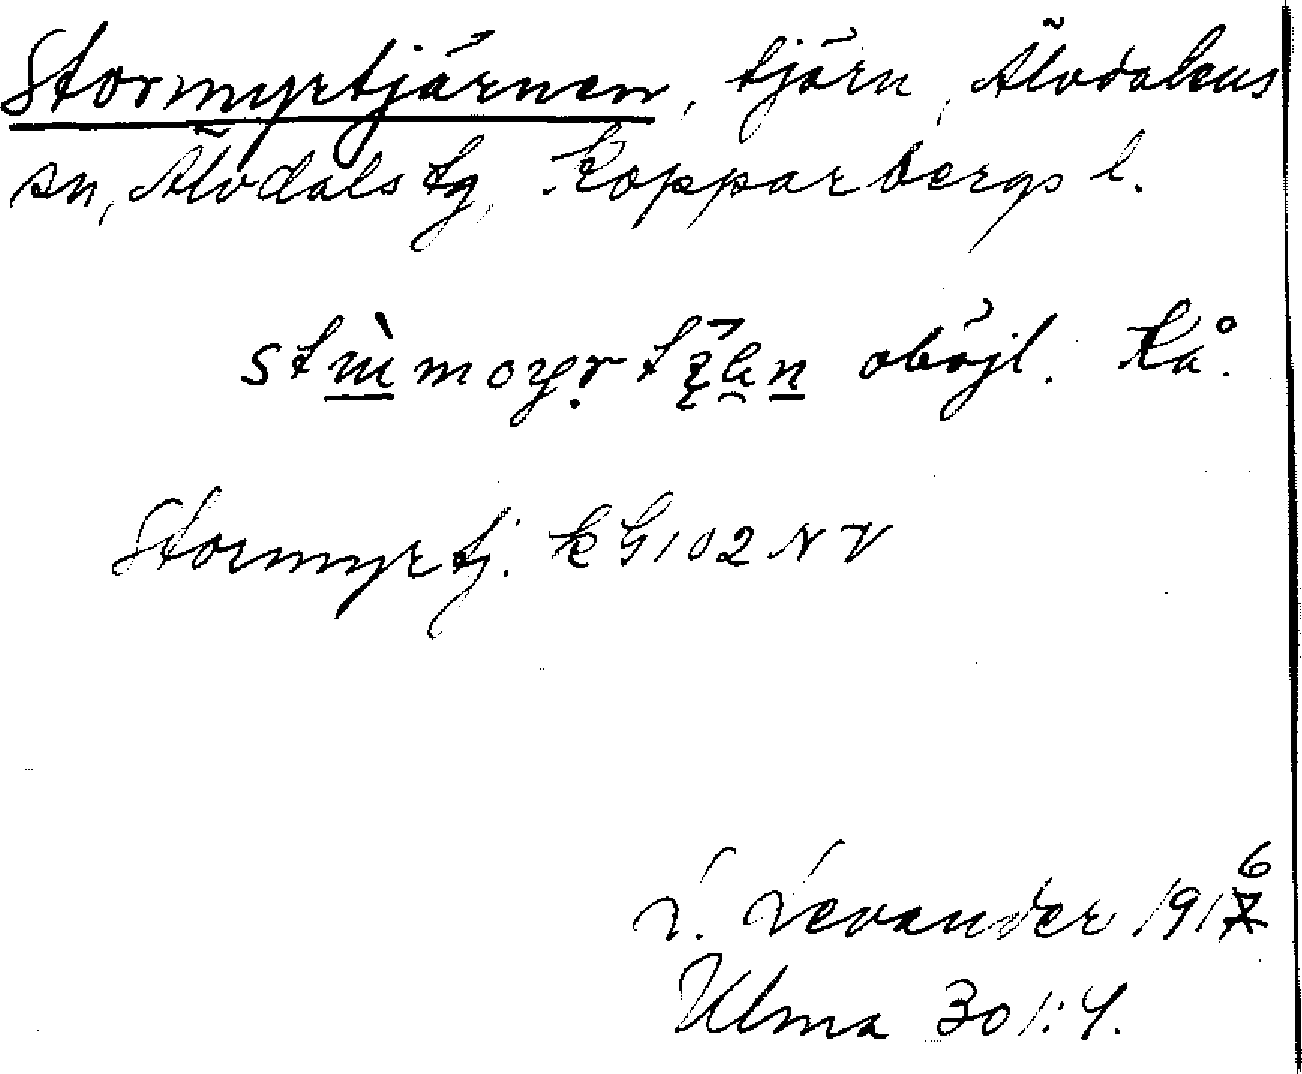 Stormyrtjärnen, tjärn, Älvdalens
sn, Älvdals tg, Kopparbergs l.
oböjl. Kå.
Stormyrtj. k G 102 NV
L. Levander 1916
Ulma 301:4.